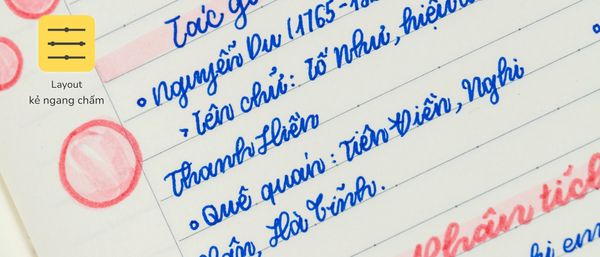 Layout
kẻ ngang chấm
Tác g
Nguyễn Du (1765-18
Tên chữ: Tố Như, hiệu
Thanh Hiên
Quê quán: Tiên Điền, Nghi
Xuân, Hà Tĩnh.
Phân tích